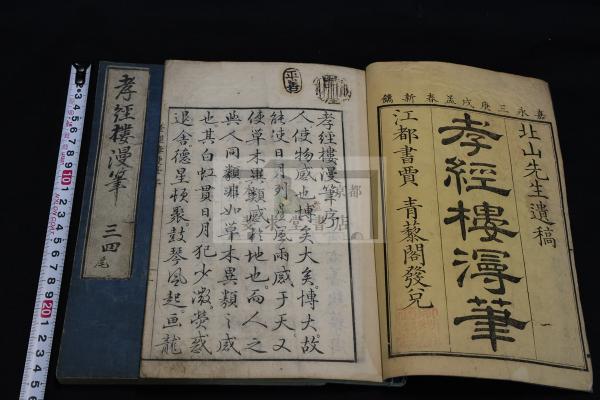 嘉永三庚戌孟春新鐫
北山先生遺稿
孝經樓漫筆
江都書賈 青藜閣發兌
一
孝經樓漫筆序
人使物感也博矣大矣博大故
能使日月列星風雨感于天又
使草木異類感於地也而人之
與人同類非如草木異類之感
也其白虹貫日月犯少微熒惑
退舍德星頻聚鼓琴風起畫龍
孝經樓漫筆 三四 尾
京都
書店